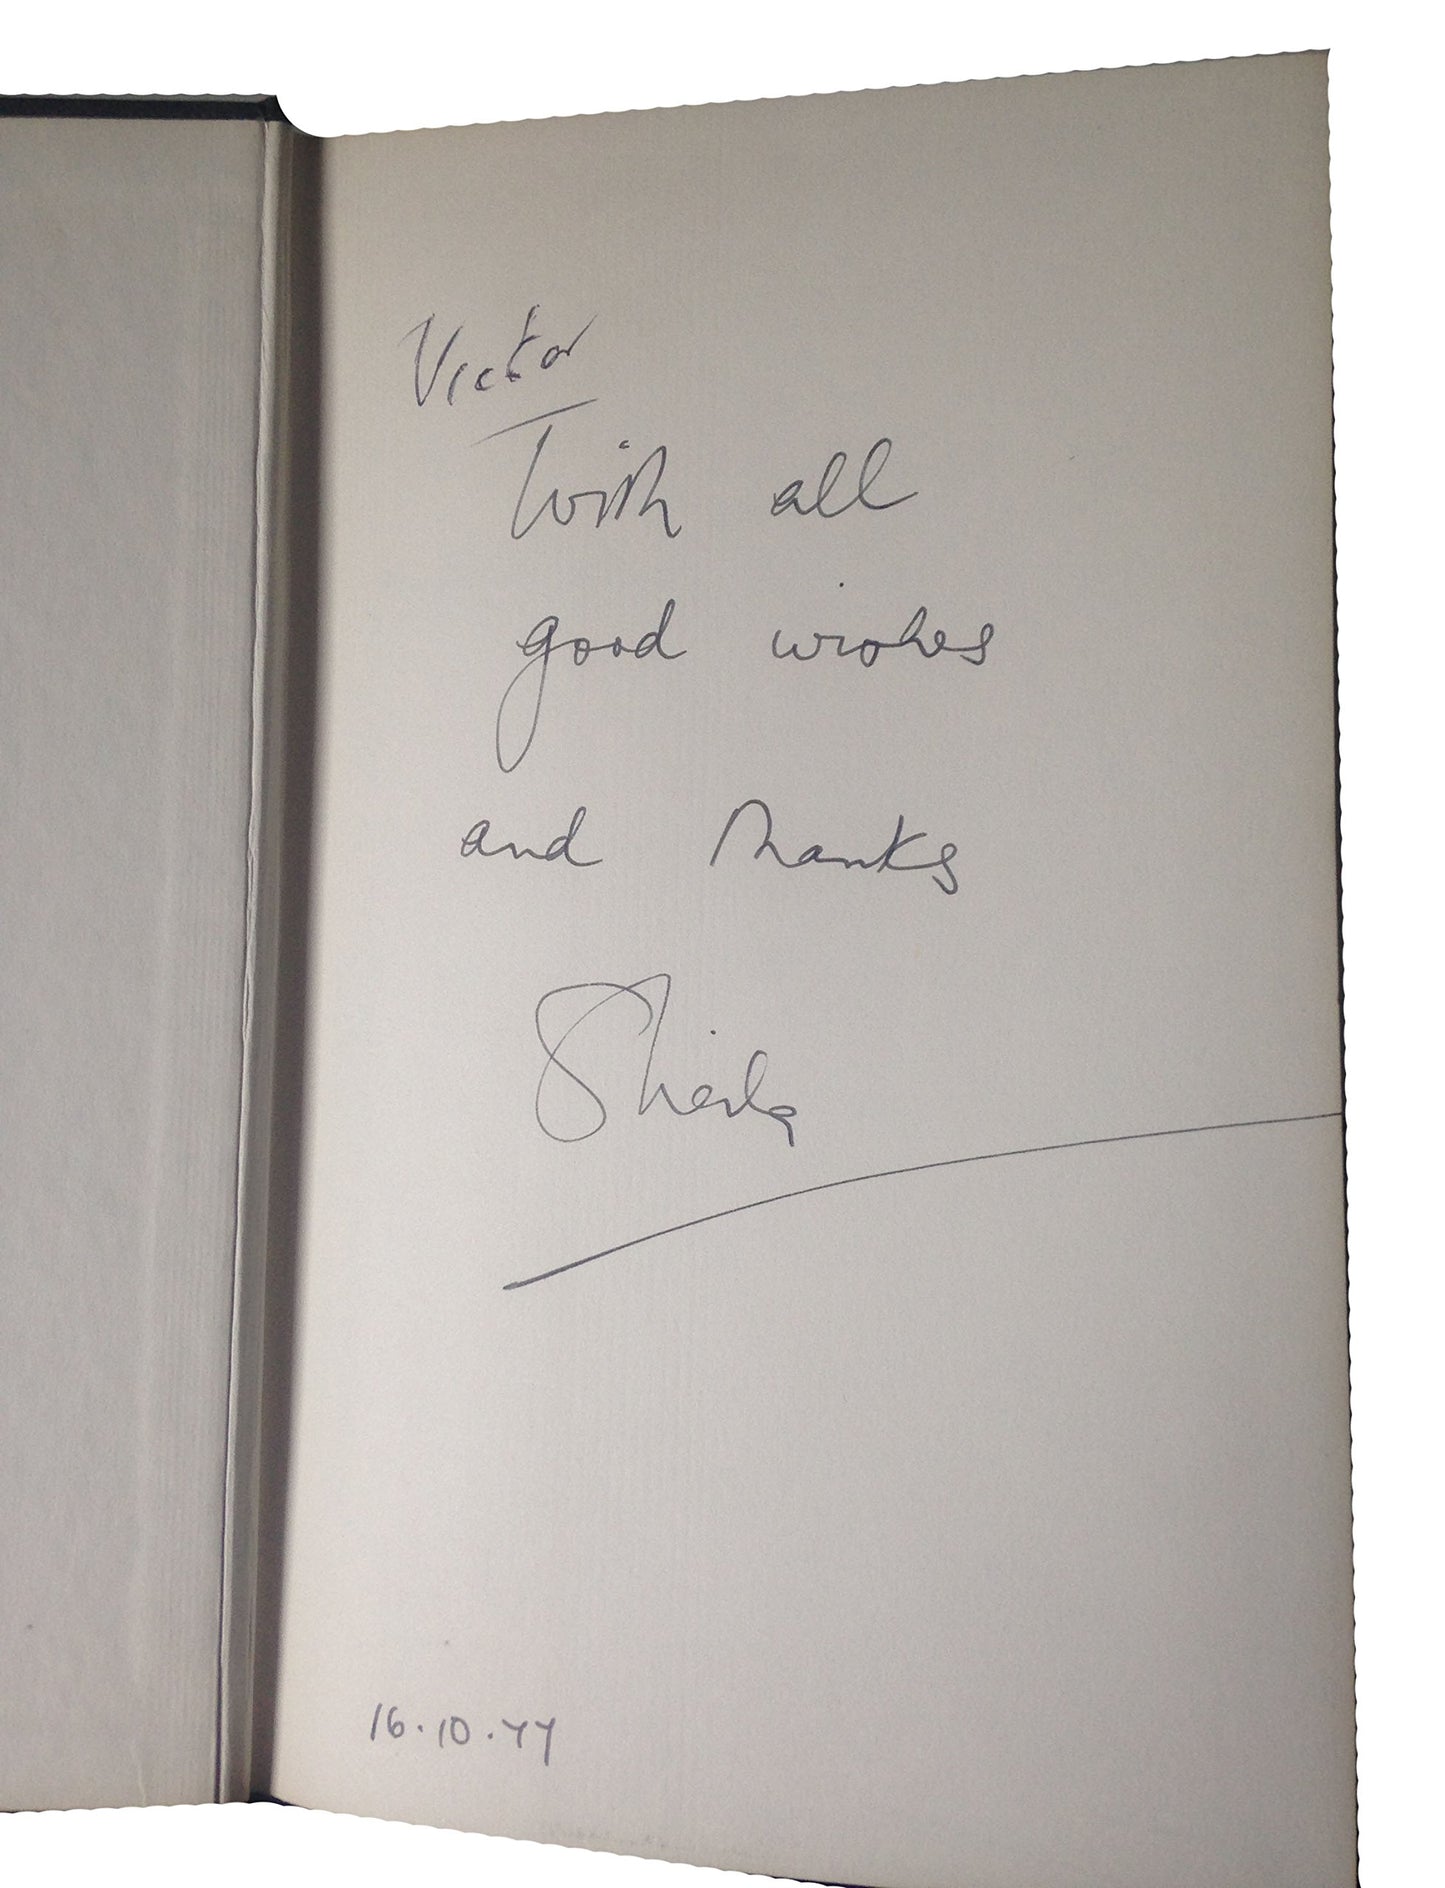 Victor
With all
good wishes
and thanks
Sheila
16.10.77